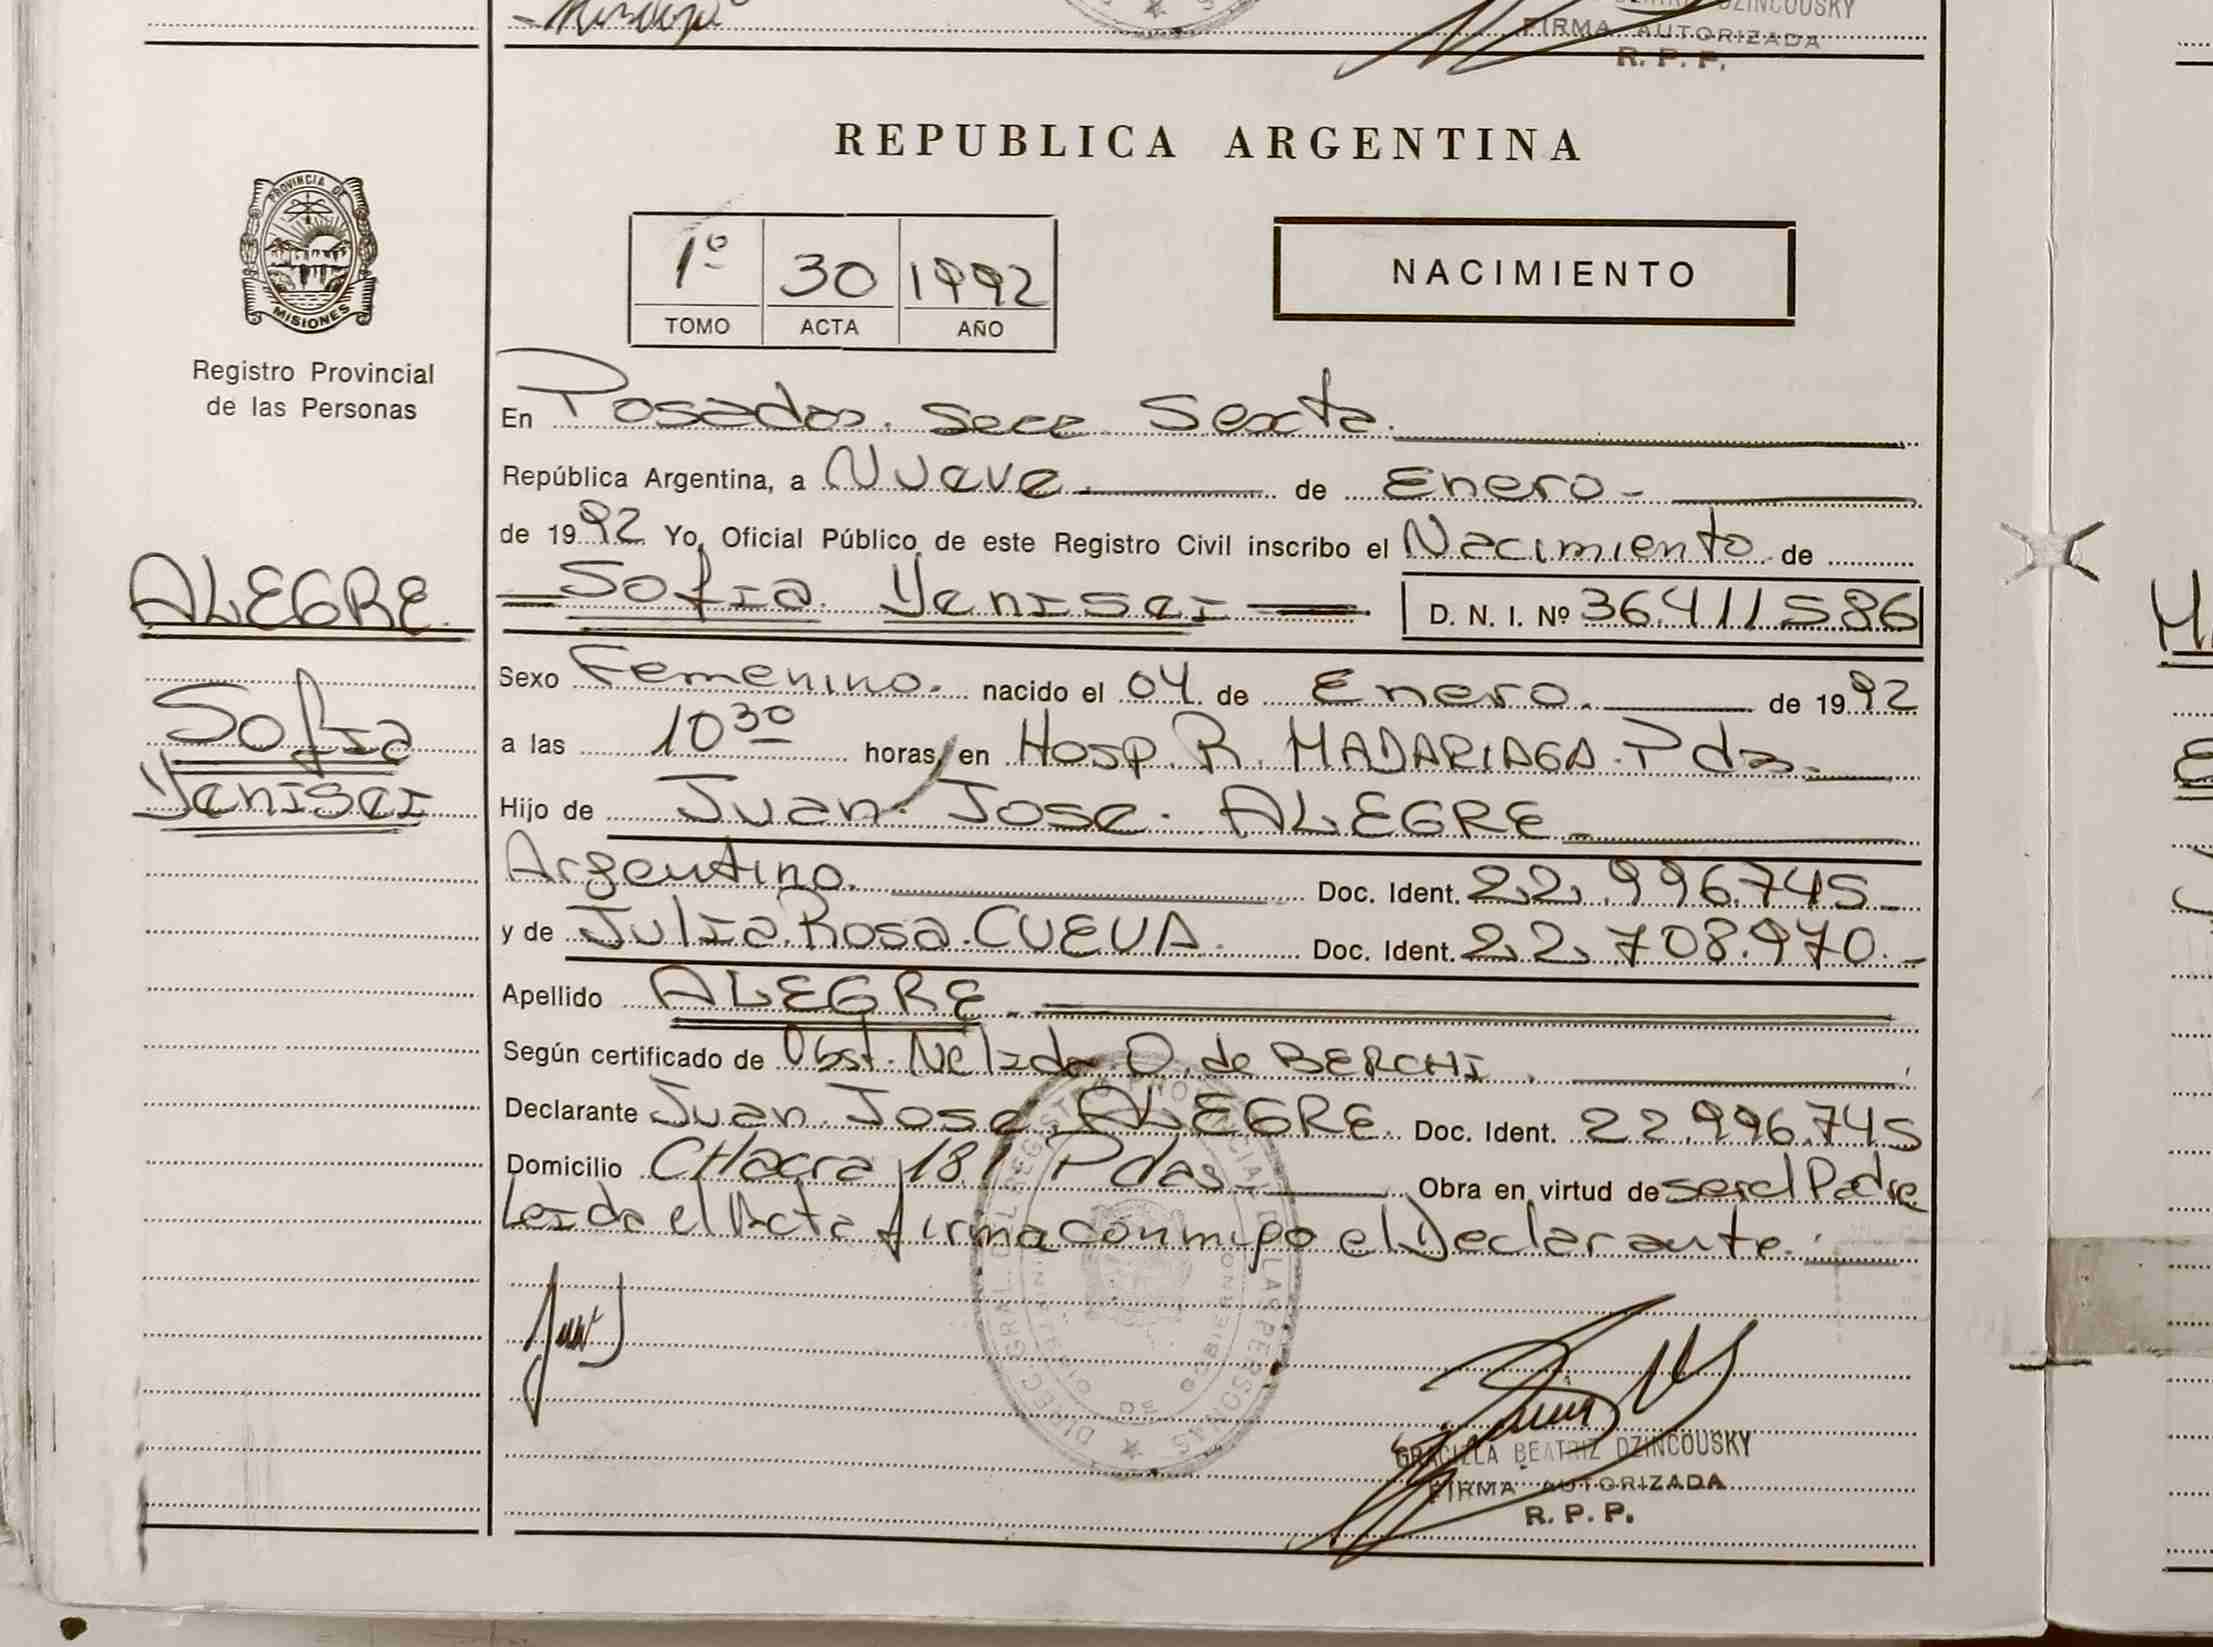 DZINCOUSKY
FIRMA AUTORIZADA
R. P. P.
REPUBLICA ARGENTINA
PROVINCIA DE
MISIONES
Registro Provincial
de las Personas
1º 30 1992
TOMO ACTA AÑO
NACIMIENTO
En Posadas. Secc. Sexta.
República Argentina, a Nueve. de Enero.
de 1992 Yo, Oficial Público de este Registro Civil inscribo el Nacimiento de
Sofia Yenisei D. N. I. Nº 36.411.586
ALEGRE
Sofia
Yenisei
Sexo Femenino. nacido el 04 de Enero. de 1992
a las 10 30 horas, en Hosp. R. MADARIAGA. Pdas.
Hijo de Juan. Jose. ALEGRE.
Argentino. Doc. Ident. 22.996.745
y de Julia. Rosa. CUEVA. Doc. Ident. 22.708.970.
Apellido ALEGRE
Según certificado de Obst. Nelida O. de BERCHI
Declarante Juan. Jose. ALEGRE. Doc. Ident. 22.996.745
Domicilio CHacra 181 Pdas Obra en virtud de ser el Padre
Leida el Acta firma conmigo el Declarante.
DIREC. GRAL. DEL REGISTRO PROVINCIAL DE LAS PERSONAS
GRACIELA BEATRIZ DZINCOUSKY
FIRMA AUTORIZADA
R. P. P.